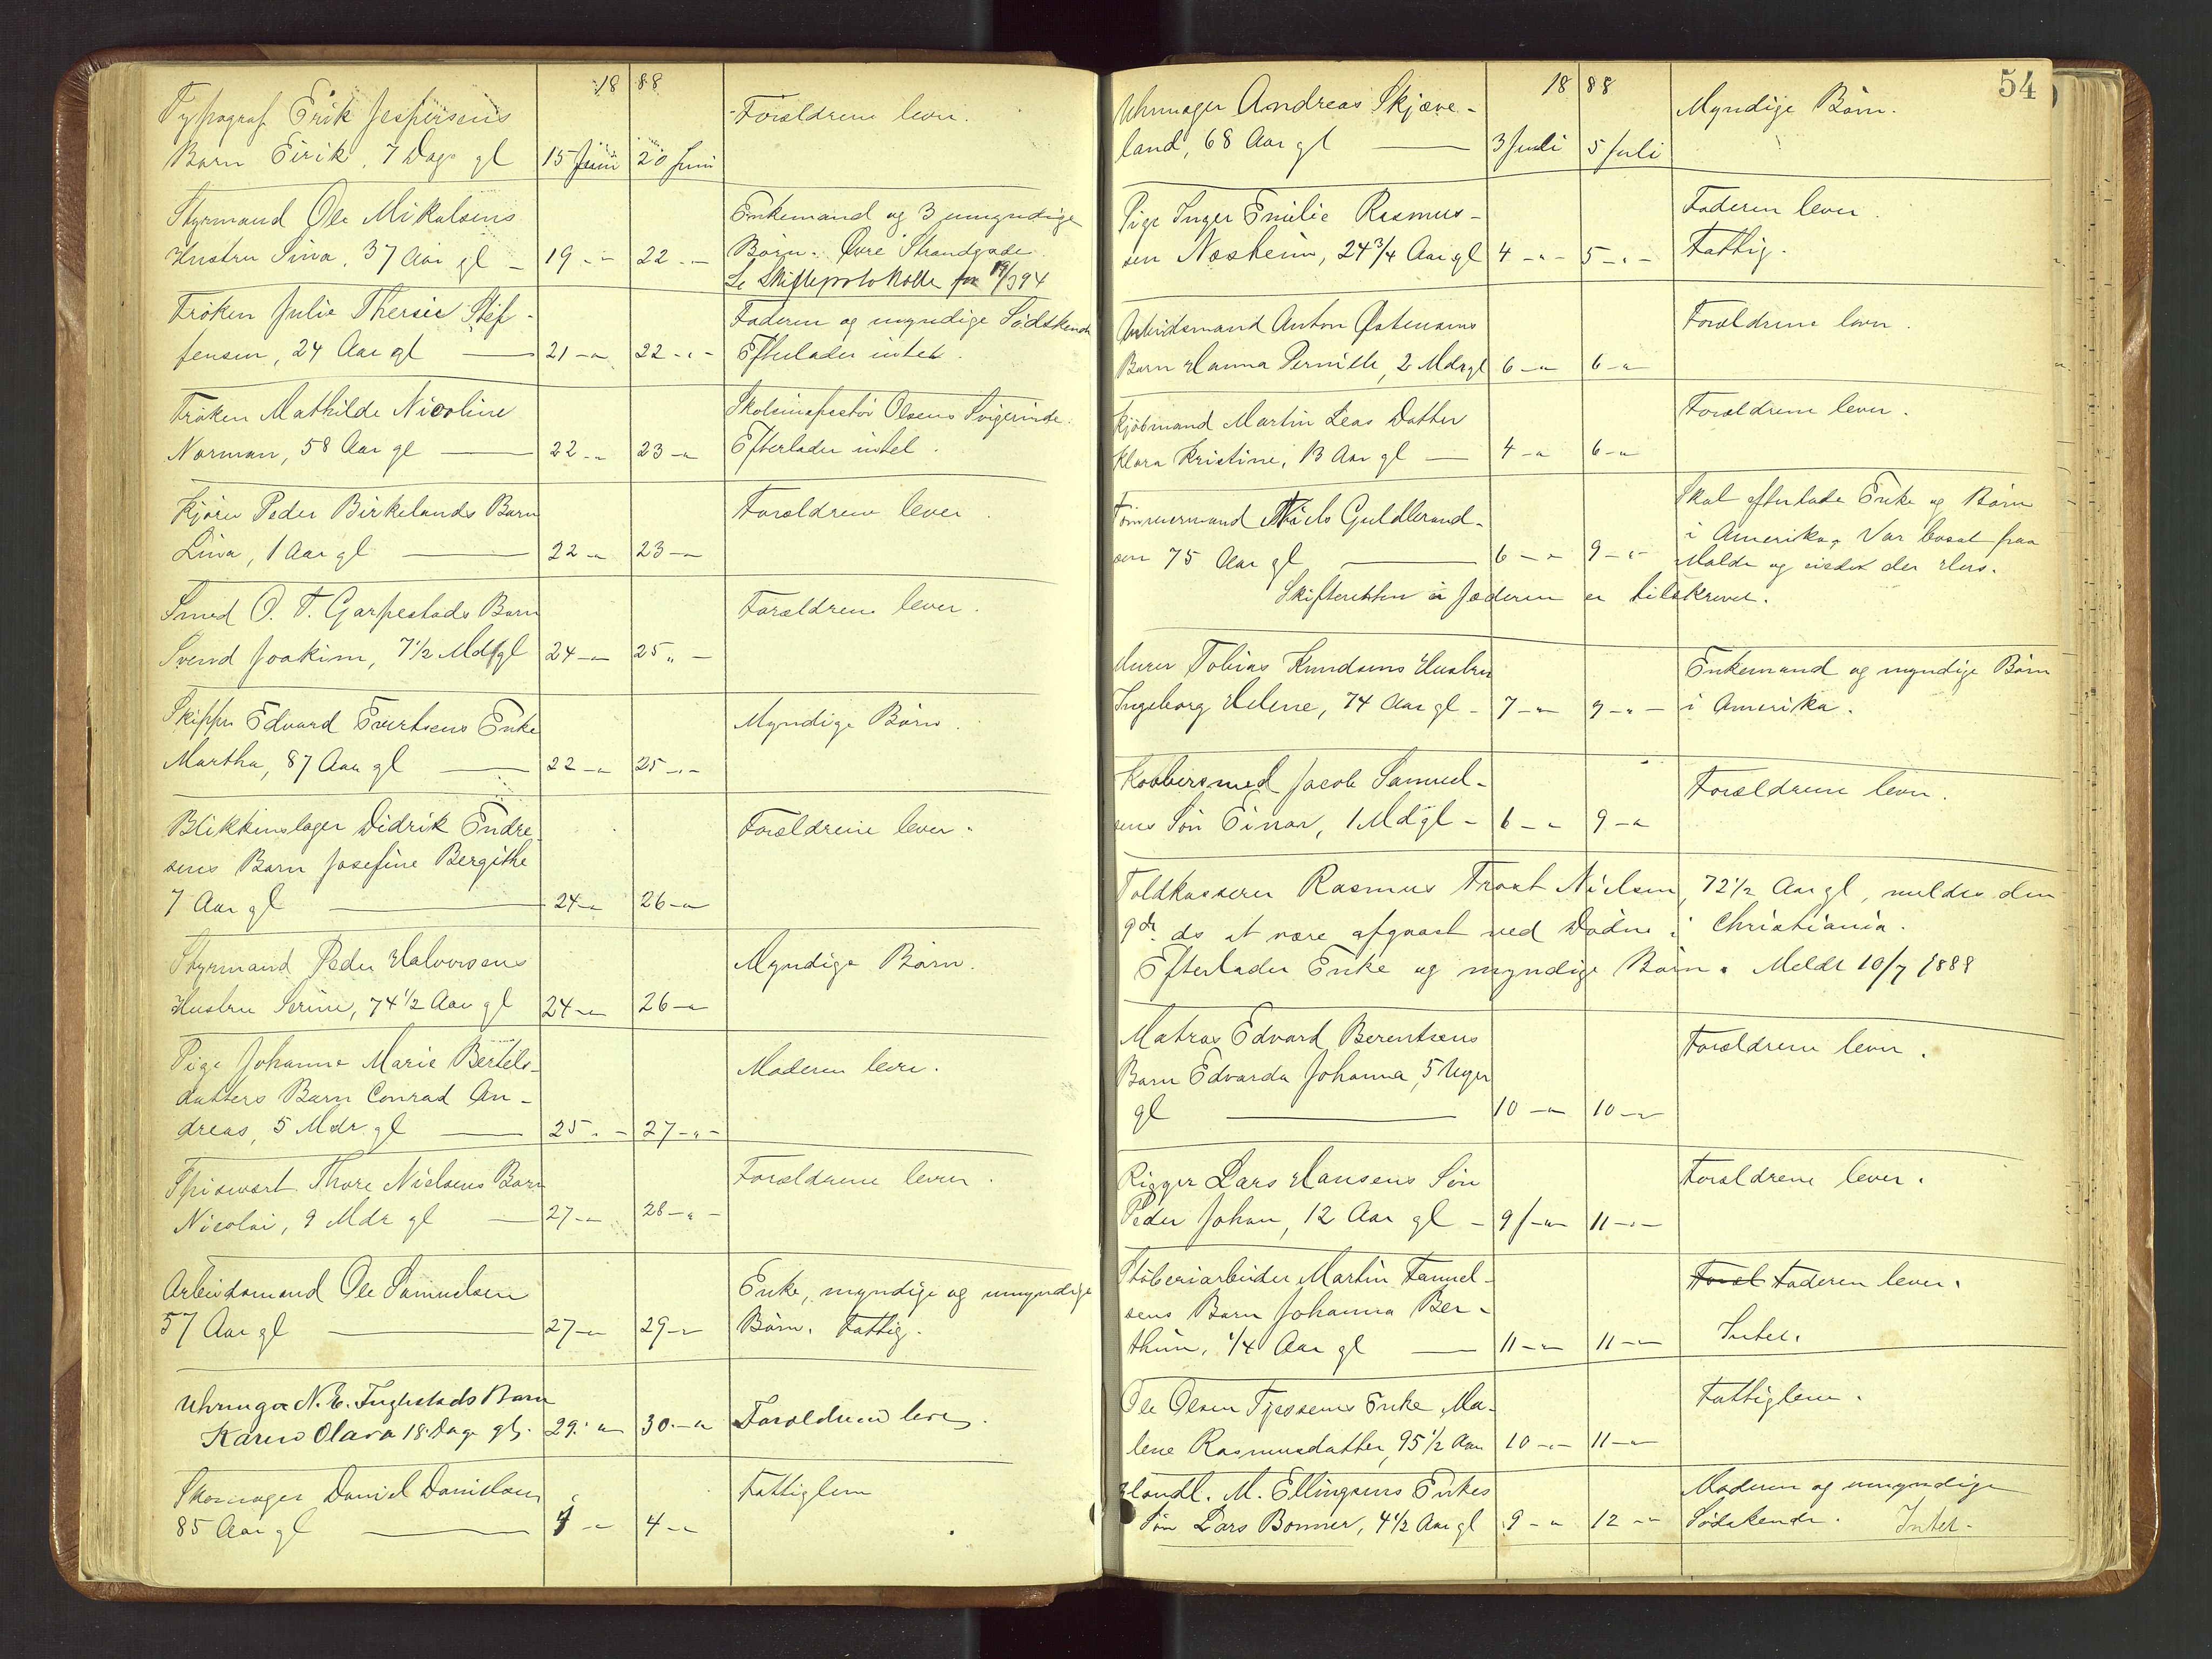 18 88
Typograf Erik Jespersens
Forældrene lever.
Barn Eirik, 7 Dage gl 15 Juni 20 Juni
Styrmand Ole Mikalsens
Enkemand og 3 umyndige
Hustru Sina, 37 Aar gl 19 - " 22 - "
Børn. Øvre Strandgade
Se Skifteprotokolle 19/3 94
Frøken Julie Theresie Stef-
Faderen og myndige Sødskende
fensen, 24 Aar gl 21 - " 22 - " -
Efterlader intet.
Frøken Mathilde Nicoline
Skoleinspektør Olsens Svigerinde.
Norman, 58 Aar gl 22 - " 23 - "
Efterlader intet.
Kjører Peder Birkelands Barn
Forældrene lever.
Lina, 1 Aar gl 22 - " 23 - "
Smed O. T. Garpestads Barn
Forældrene lever.
Svend Joakim, 7 1/2 Mdr gl 24 - " 25 " -
Skipper Edvard Evertsens Enke
Myndige Børn.
Martha, 87 Aar gl 22 - " 25 - " -
Blikkenslager Didrik Endre-
Forældrene lever.
sens Barn Josefine Bergithe
7 Aar gl 24 - " 26 - "
Styrmand Peder Halvorsens
Myndige Børn.
Hustru Serine, 74 1/2 Aar gl 24 - " 26 - "
Pige Johanne Marie Bertels-
Moderen lever.
datters Barn Conrad An-
dreas, 5 Mdr. gl 25 " - 27 - " -
Spisevært Thore Nielsens Barn
Forældrene lever.
Nicolai, 9 Mdr gl 27 - " 28 - " -
Arbeidsmand Ole Samuelsen
Enke, myndige og umyndige
57 Aar gl 27 - " 29 - "
Børn. Fattig.
Uhrmager N. E. Fuglestads Barn
Karen Olava 18 Dage gl. 29. " 30. - "
Forældrene lever.
Skomager Daniel Danielsen
Fattiglem
85 Aar gl - " 4 - "
54
18 88
Uhrmager Andreas Skjæve-
Myndige Børn.
land, 68 Aar gl 3 Juli 5 Juli
Pige Inger Emilie Rasmus-
Faderen lever.
sen Næsheim, 24 3/4 Aar gl 4 - " - 5 - " -
Fattig.
Arbeidsmand Anton Østensens
Forældrene lever.
Barn Hanna Pernille, 2 Mdr gl 6 - " 6 - "
Kjøbmand Martin Leas Datter
Forældrene lever.
Klara Kristine, 13 Aar gl 4 - " 6 - "
Skal efterlade Enke og Børn
Tømmermand Niels Guldbrand-
i Amerika. Var bosat paa
sen 75 Aar gl 6 - " 9 - " -
Skifteretten i Jæderen er tilskrevet.
Murer Tobias Knudsens Hustru
Enkemand og myndige Børn
Ingeborg Helene, 74 Aar gl - 7 - " 9 - " -
i Amerika.
Kobbersmed Jacob Samuel-
Forældrene lever.
sens Søn Einar, 1 Md gl - 6 - " 9 - "
Toldkasserer Rasmus Frost Nielsen, 72 1/2 Aar gl, meldes den
9de ds at være afgaaet ved Døden i Christiania.
Efterlader Enke og myndige Børn. Meldt 10/7 1888
Matros Edvard Berentsens
Forældrene lever.
Barn Edvarda Johanna, 5 Uger
gl 10 - " 10 - "
Rigger Lars Hansens Søn
Forældrene lever.
Peder Johan, 12 Aar gl - 9 - " 11 - " -
Støberiarbeider Martin Samuel-
Foræl Faderen lever.
sens Barn Johanna Ber-
thine, 1/4 Aar gl 11 - " 11 - "
Intet.
Ole Olsen Tjessems Enke, Ma-
Fattiglem.
lene Rasmusdatter, 95 1/2 Aar 10 - " - 11 - "
Handl. M. Ellingsens Enkes
Moderen og umyndige
Søn Lars Bonner, 4 1/2 Aar gl 9 - " 12 - "
Sødskende. Intet.